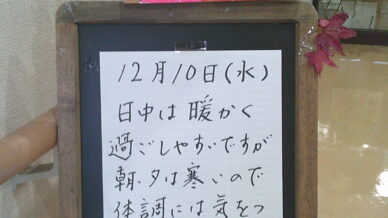 12月10日(水)
日中は暖かく
過ごしやすいですが
朝.夕は寒いので
体調には気をつ